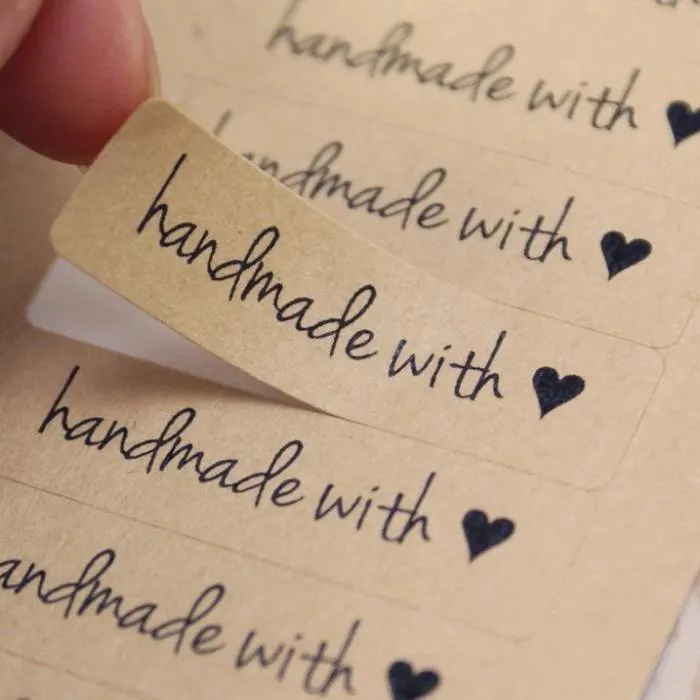 handmade with ♥
handmade with ♥
handmade with ♥
handmade with ♥
handmade with ♥